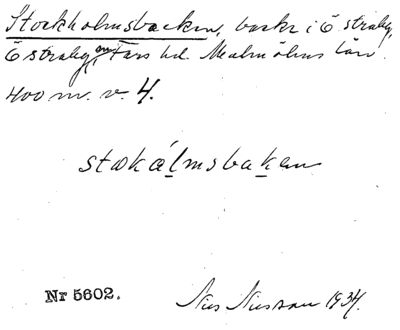 Stockholmsbacken, backe i Ö straby,
Ö straby sn, Färs hd. Malmöhus län.
400 m. v. 4.
stωkálmsbakan
Nr 5602.
Nils Nilsson 1934.